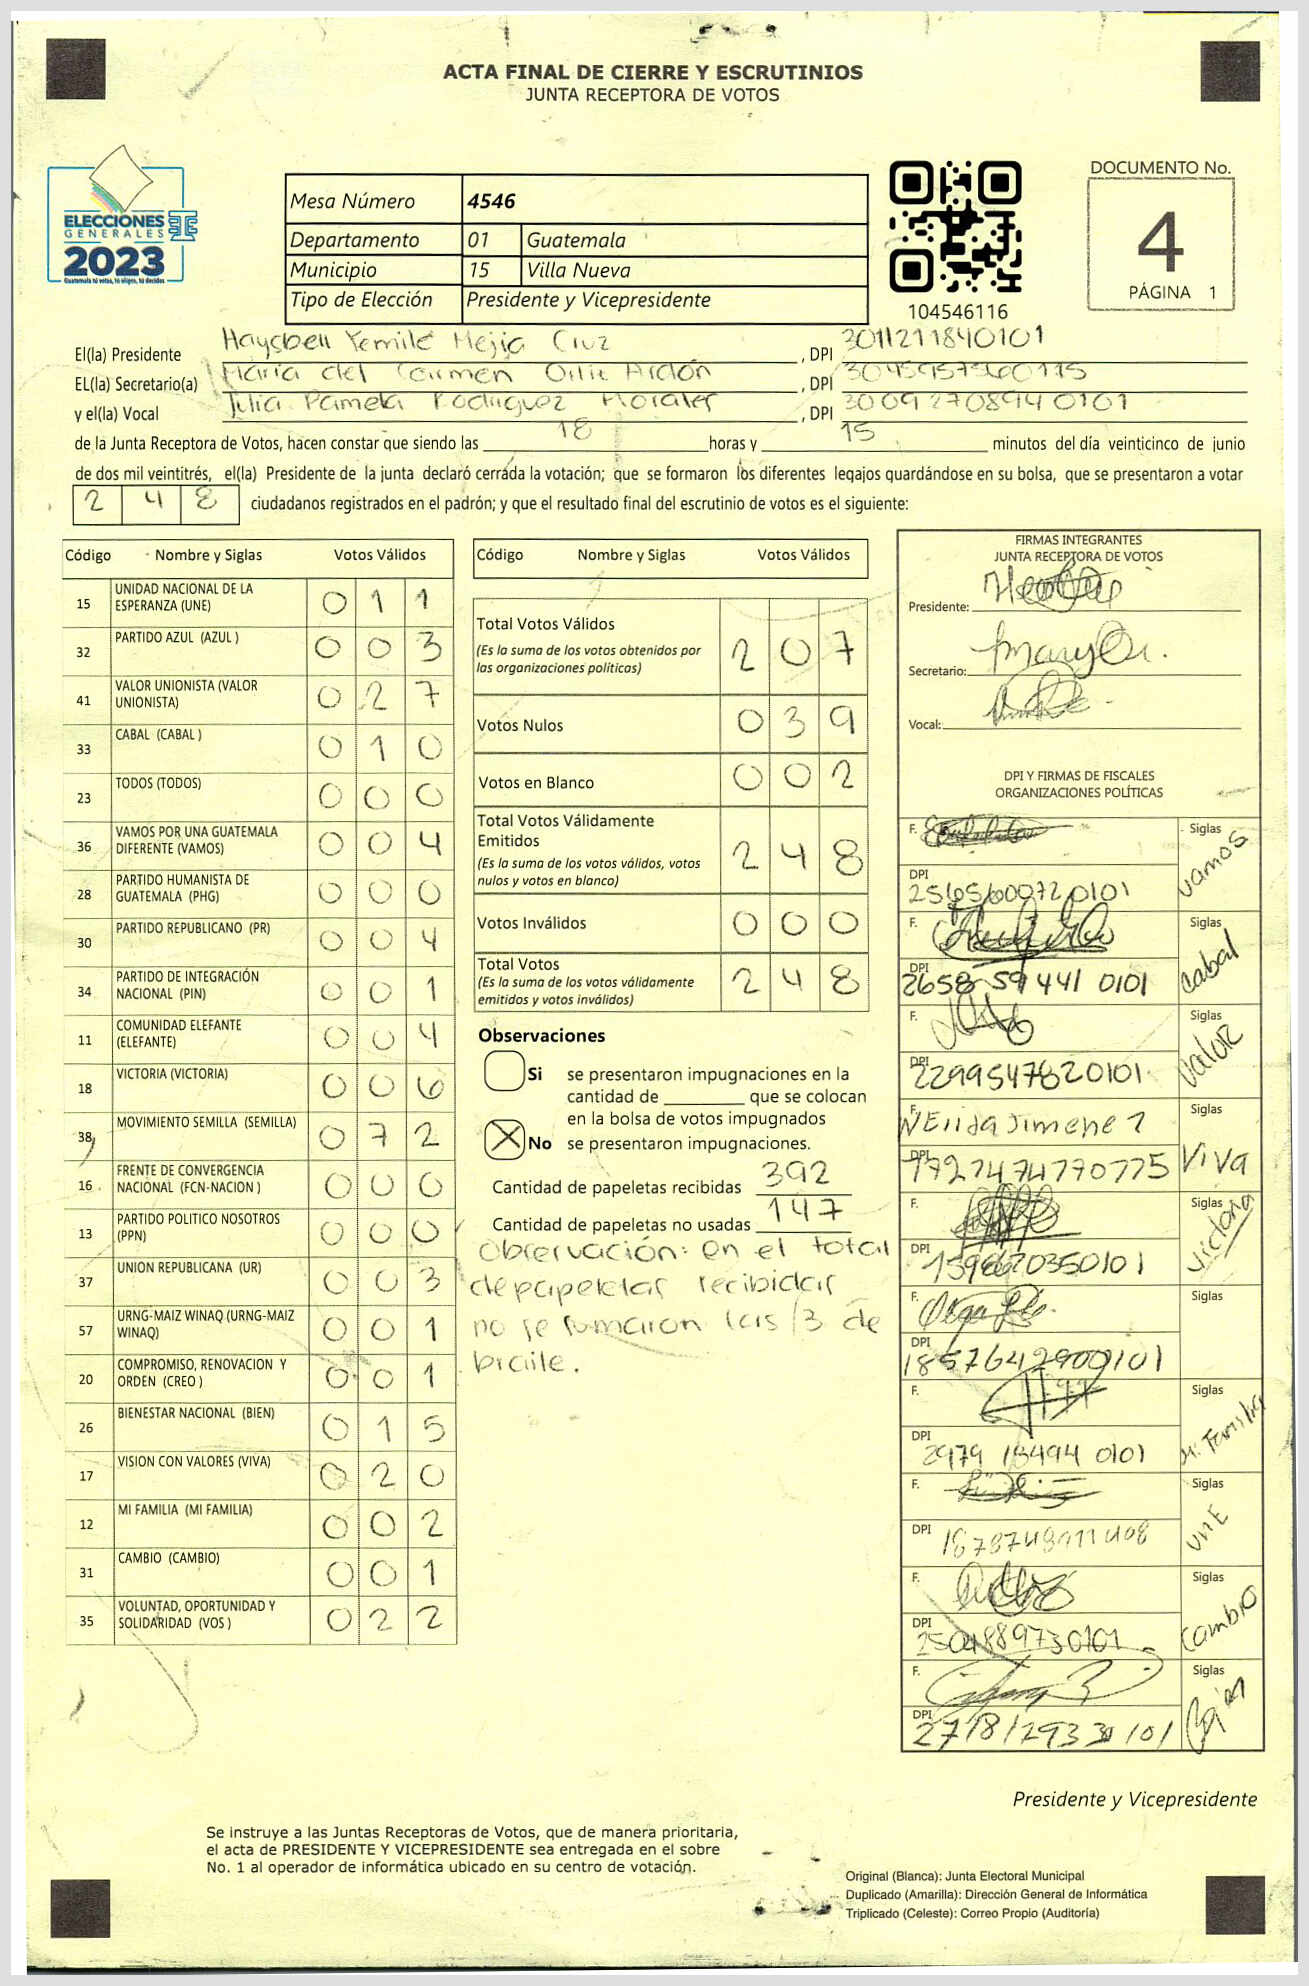 ACTA FINAL DE CIERRE Y ESCRUTINIOS
JUNTA RECEPTORA DE VOTOS
ELECCIONES
GENERALES
2023
Guatemala tú votas, tú eliges, tú decides
Mesa Número 4546
Departamento 01 Guatemala
Municipio 15 Villa Nueva
Tipo de Elección Presidente y Vicepresidente
104546116
DOCUMENTO No.
4
PÁGINA 1
El(la) Presidente Haysbell Yemile Mejia Cruz, DPI 3011211840101
EL(la) Secretario(a) Maria del Carmen Ardón, DPI
y el(la) Vocal Julia Pamela Rodriguez Morales, DPI 3009270894 0101
de la Junta Receptora de Votos, hacen constar que siendo las 18 horas y 15 minutos del día veinticinco de junio
de dos mil veintitrés, el(la) Presidente de la junta declaró cerrada la votación; que se formaron los diferentes legajos guardándose en su bolsa, que se presentaron a votar
2 4 8 ciudadanos registrados en el padrón; y que el resultado final del escrutinio de votos es el siguiente:
Código Nombre y Siglas Votos Válidos
15 UNIDAD NACIONAL DE LA ESPERANZA (UNE) 0 1 1
32 PARTIDO AZUL (AZUL ) 0 0 3
41 VALOR UNIONISTA (VALOR UNIONISTA) 0 2 7
33 CABAL (CABAL ) 0 1 0
23 TODOS (TODOS) 0 0 0
36 VAMOS POR UNA GUATEMALA DIFERENTE (VAMOS) 0 0 4
28 PARTIDO HUMANISTA DE GUATEMALA (PHG) 0 0 0
30 PARTIDO REPUBLICANO (PR) 0 0 4
34 PARTIDO DE INTEGRACIÓN NACIONAL (PIN) 0 0 1
11 COMUNIDAD ELEFANTE (ELEFANTE) 0 0 4
18 VICTORIA (VICTORIA) 0 0 6
38 MOVIMIENTO SEMILLA (SEMILLA) 0 7 2
16 FRENTE DE CONVERGENCIA NACIONAL (FCN-NACION ) 0 0 0
13 PARTIDO POLITICO NOSOTROS (PPN) 0 0 0
37 UNION REPUBLICANA (UR) 0 0 3
57 URNG-MAIZ WINAQ (URNG-MAIZ WINAQ) 0 0 1
20 COMPROMISO, RENOVACION Y ORDEN (CREO ) 0 0 1
26 BIENESTAR NACIONAL (BIEN) 0 1 5
17 VISION CON VALORES (VIVA) 0 2 0
12 MI FAMILIA (MI FAMILIA) 0 0 2
31 CAMBIO (CAMBIO) 0 0 1
35 VOLUNTAD, OPORTUNIDAD Y SOLIDARIDAD (VOS ) 0 2 2
Código Nombre y Siglas Votos Válidos
Total Votos Válidos 2 0 7
(Es la suma de los votos obtenidos por
las organizaciones políticas)
Votos Nulos 0 3 9
Votos en Blanco 0 0 2
Total Votos Válidamente
Emitidos 2 4 8
(Es la suma de los votos válidos, votos
nulos y votos en blanco)
Votos Inválidos 0 0 0
Total Votos 2 4 8
(Es la suma de los votos válidamente
emitidos y votos inválidos)
Observaciones
Si se presentaron impugnaciones en la
cantidad de ________ que se colocan
en la bolsa de votos impugnados
X No se presentaron impugnaciones.
Cantidad de papeletas recibidas 392
Cantidad de papeletas no usadas 147
Observación: en el total
de papeletas recibidas
no se sumaron las 13 de
braile.
FIRMAS INTEGRANTES
JUNTA RECEPTORA DE VOTOS
Presidente:
Secretario:
Vocal:
DPI Y FIRMAS DE FISCALES
ORGANIZACIONES POLÍTICAS
F. Siglas Vamos
DPI 2565600720101
F. Siglas Cabal
DPI 2658 59441 0101
F. Siglas Valor
DPI 2299547820101
F. Nerida Jimenez Siglas Viva
DPI 1727474770775
F. Siglas Victoria
DPI
F. Siglas
DPI 1857642900101
F. Siglas M. Familia
DPI 2979 15494 0101
F. Siglas UNE
DPI
F. Siglas Cambio
DPI 2504889730101
F. Siglas Bien
DPI
Presidente y Vicepresidente
Se instruye a las Juntas Receptoras de Votos, que de manera prioritaria,
el acta de PRESIDENTE Y VICEPRESIDENTE sea entregada en el sobre
No. 1 al operador de informática ubicado en su centro de votación.
Original (Blanca): Junta Electoral Municipal
Duplicado (Amarilla): Dirección General de Informática
Triplicado (Celeste): Correo Propio (Auditoría)